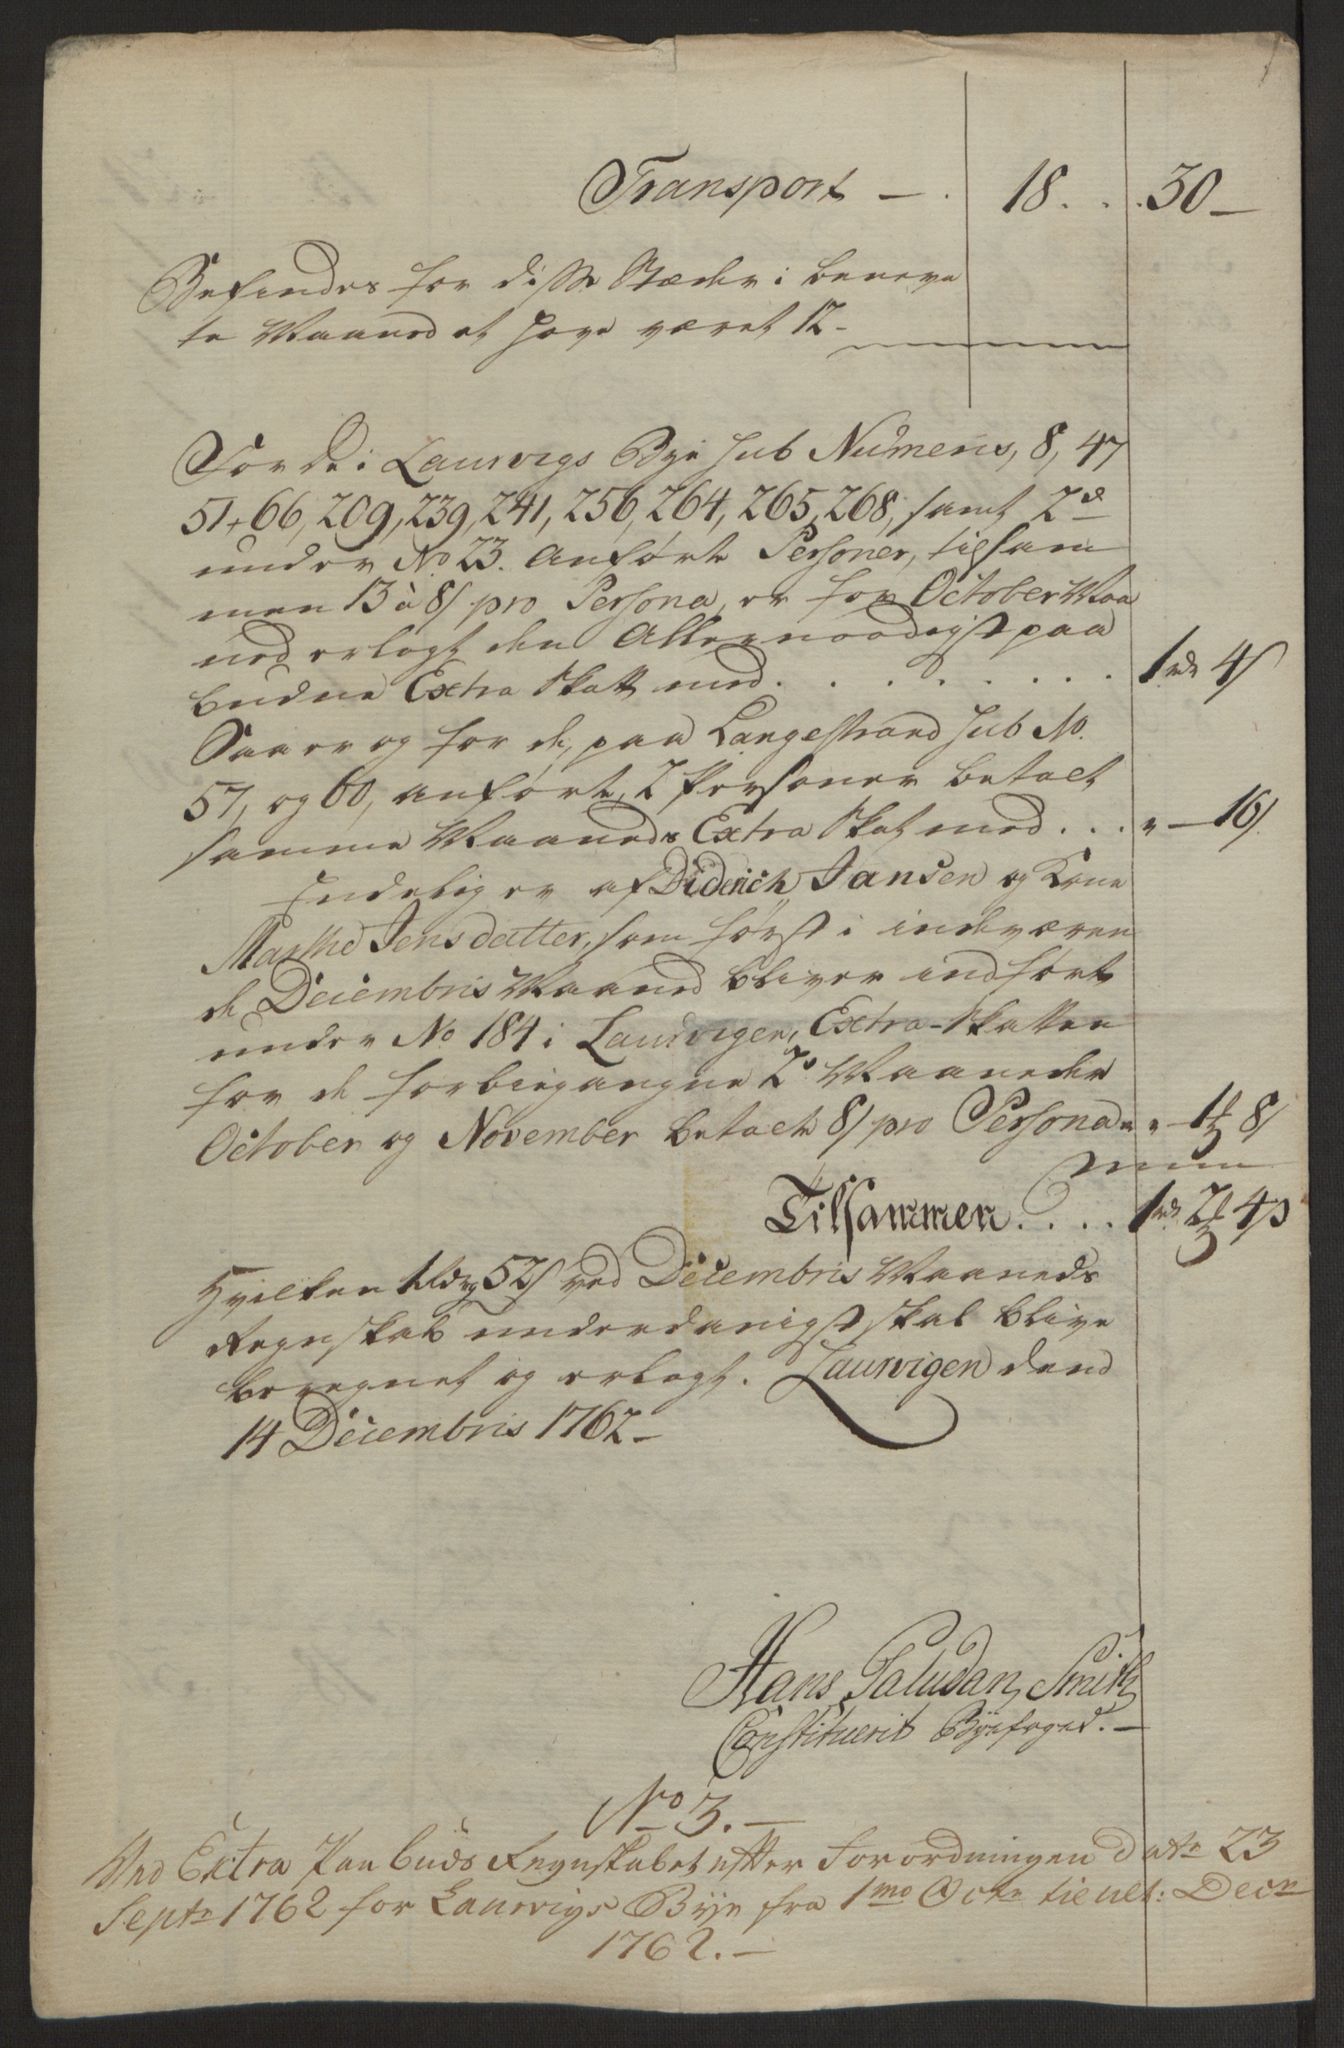 Transport — . 18 . . . 30 —
Befindes for disse Stæder i benevn
te Maaned at have været 12 —
For De i Laurvigs Bye sub Numeris, 8, 47
51, 66, 209, 239, 241, 256, 264, 265, 268, samt 2de
under No 23. anførte Personer, tilsam
men 13 à 8/ pro Persona, er for October Maa
ned erlagt den Allernaadigst paa
budne Extra Skatt med . . . . . . . 1rdr 4/
Saa er og for de, paa Langestrand sub No.
57, og 60, anførte 2 Personer betalt
samme Maaneds Extra Skat med . . . " — 16/
Endelig er af Diderich Jansen og Kone
Marthe Jensdatter, som først i indværen
de Decembris Maaned bliver indført
under No 184 i Laurvigen, Extra-Skatten
for de forbiegangne 2de Maaneder
October og November betalt 8/ pro Persona " — 1ß 8/
Tilsammen . . . . 1rdr 2ß 4/
Hvilken 1 Rdr 52/ ved Decembris Maaneds
Regnskab underdanigst skal blive
beregnet og erlagt. Laurvigen dend
14 Decembris 1762 —
Hans Paludan Smith
Constituerit Byefoged. —
No 3. —
Ved Extra Paabuds Regnskabet efter Forordningen date 23
Septr 1762 for Laurvigs Bÿe fra 1mo Octr til ult: Decr
1762. —